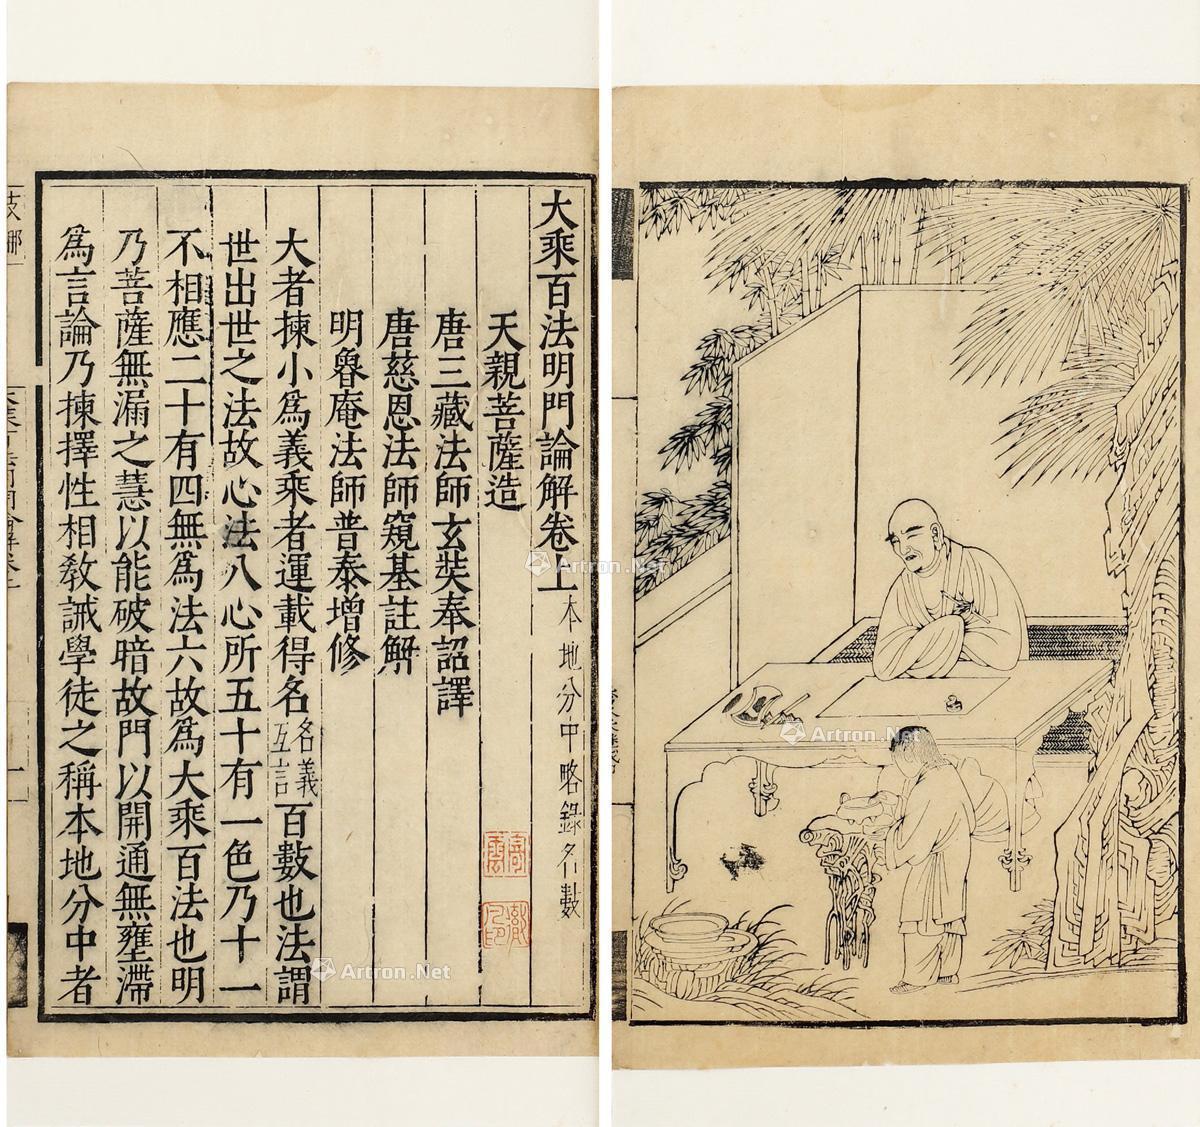 大乘百法明門論解卷上 本地分中略錄名數
天親菩薩造
唐三藏法師玄奘奉詔譯
唐慈恩法師窺基註解
明魯庵法師普泰增修
大者揀小爲義乘者運載得名名義互言百數也法謂
世出世之法故心法八心所五十有一色乃十一
不相應二十有四無爲法六故爲大乘百法也明
乃菩薩無漏之慧以能破暗故門以開通無壅滯
爲言論乃揀擇性相敎誡學徒之稱本地分中者
Artron.Net
Artron.Net
Artron.Net